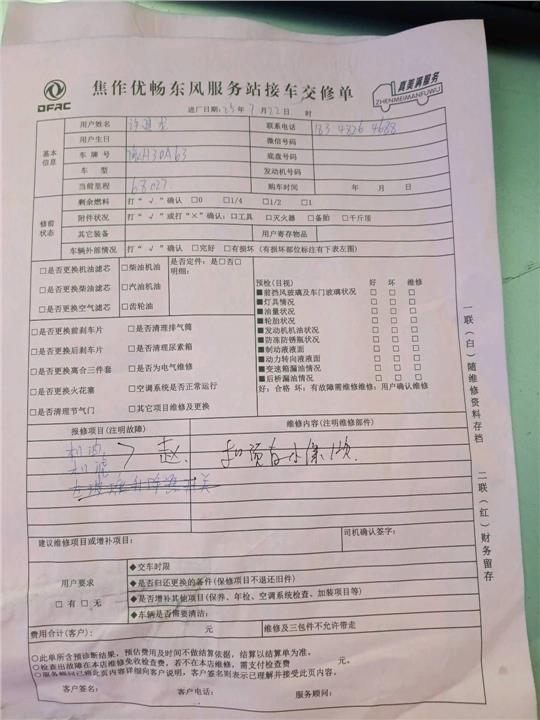 DFAC
焦作优畅东风服务站接车交修单
真美满服务
ZHENMEIMANFUWU
进厂日期：25年7月22日 时
基本信息
用户姓名
联系电话
用户生日 微信号码
车牌号 豫H30A63 底盘号码
车型 发动机号码
当前里程 68027 购车时间 年 月 日
修前状态
剩余燃料 打“√”确认 □0 □1/4 □1/2 □1
附件状况 打“√”或打“×”确认：□工具 □灭火器 □备胎 □千斤顶
其它装备 用户寄存物品
车辆外部情况 打“√”确认 □完好 □有损坏（有损坏部位标注有下表左图）
□是否更换机油滤芯 □柴油机油
□是否更换柴油滤芯 □汽油机油
□是否更换空气滤芯 □齿轮油
是否定件：是□否□
明细：
□是否更换前刹车片 □是否清理排气筒
□是否更换后刹车片 □是否清理尿素箱
□是否更换离合三件套 □是否为电气维修
□是否更换火花塞 □空调系统是否正常运行
□是否清理节气门 □其它项目维修及更换
预检(目视) 好 坏 维修
■前挡风玻璃及车门玻璃状况 □ □ □
■灯具情况 □ □ □
■油量状况 □ □ □
■轮胎状况 □ □ □
■发动机机油状况 □ □ □
■防冻防锈瓶状况 □ □ □
■制动液液面 □ □ □
■动力转向液液面 □ □ □
■变速箱漏油情况 □ □ □
■后桥漏油情况 □ □ □
好：合格 坏：有故障需维修维修：用户确认维修
报修项目(注明故障) 维修内容(注明维修部件)
机油
机滤
赵
建议维修项目或增补项目： 司机确认签字：
用户要求
□有□无
◆交车时限
◆是否归还更换的备件(保修项目不退还旧件)
◆是否增补其他项目(保养、年检、空调系统检查、加装项目等)
◆车辆是否需要清洁：
费用合计(客户)： 元 维修及三包件不允许带走
○此单所含预诊断结果，预估费用及时间不做结算依据，结算以结算单为准。
○检查出故障在本店维修免收检查费，若不在本店维修，需支付检查费 元。
○服务顾问已将此页内容详细向客户说明，客户签名则表示已理解并接受此页内容，
客户签名： 客户电话： 服务顾问：
一联（白）随维修资料存档
二联（红）财务留存